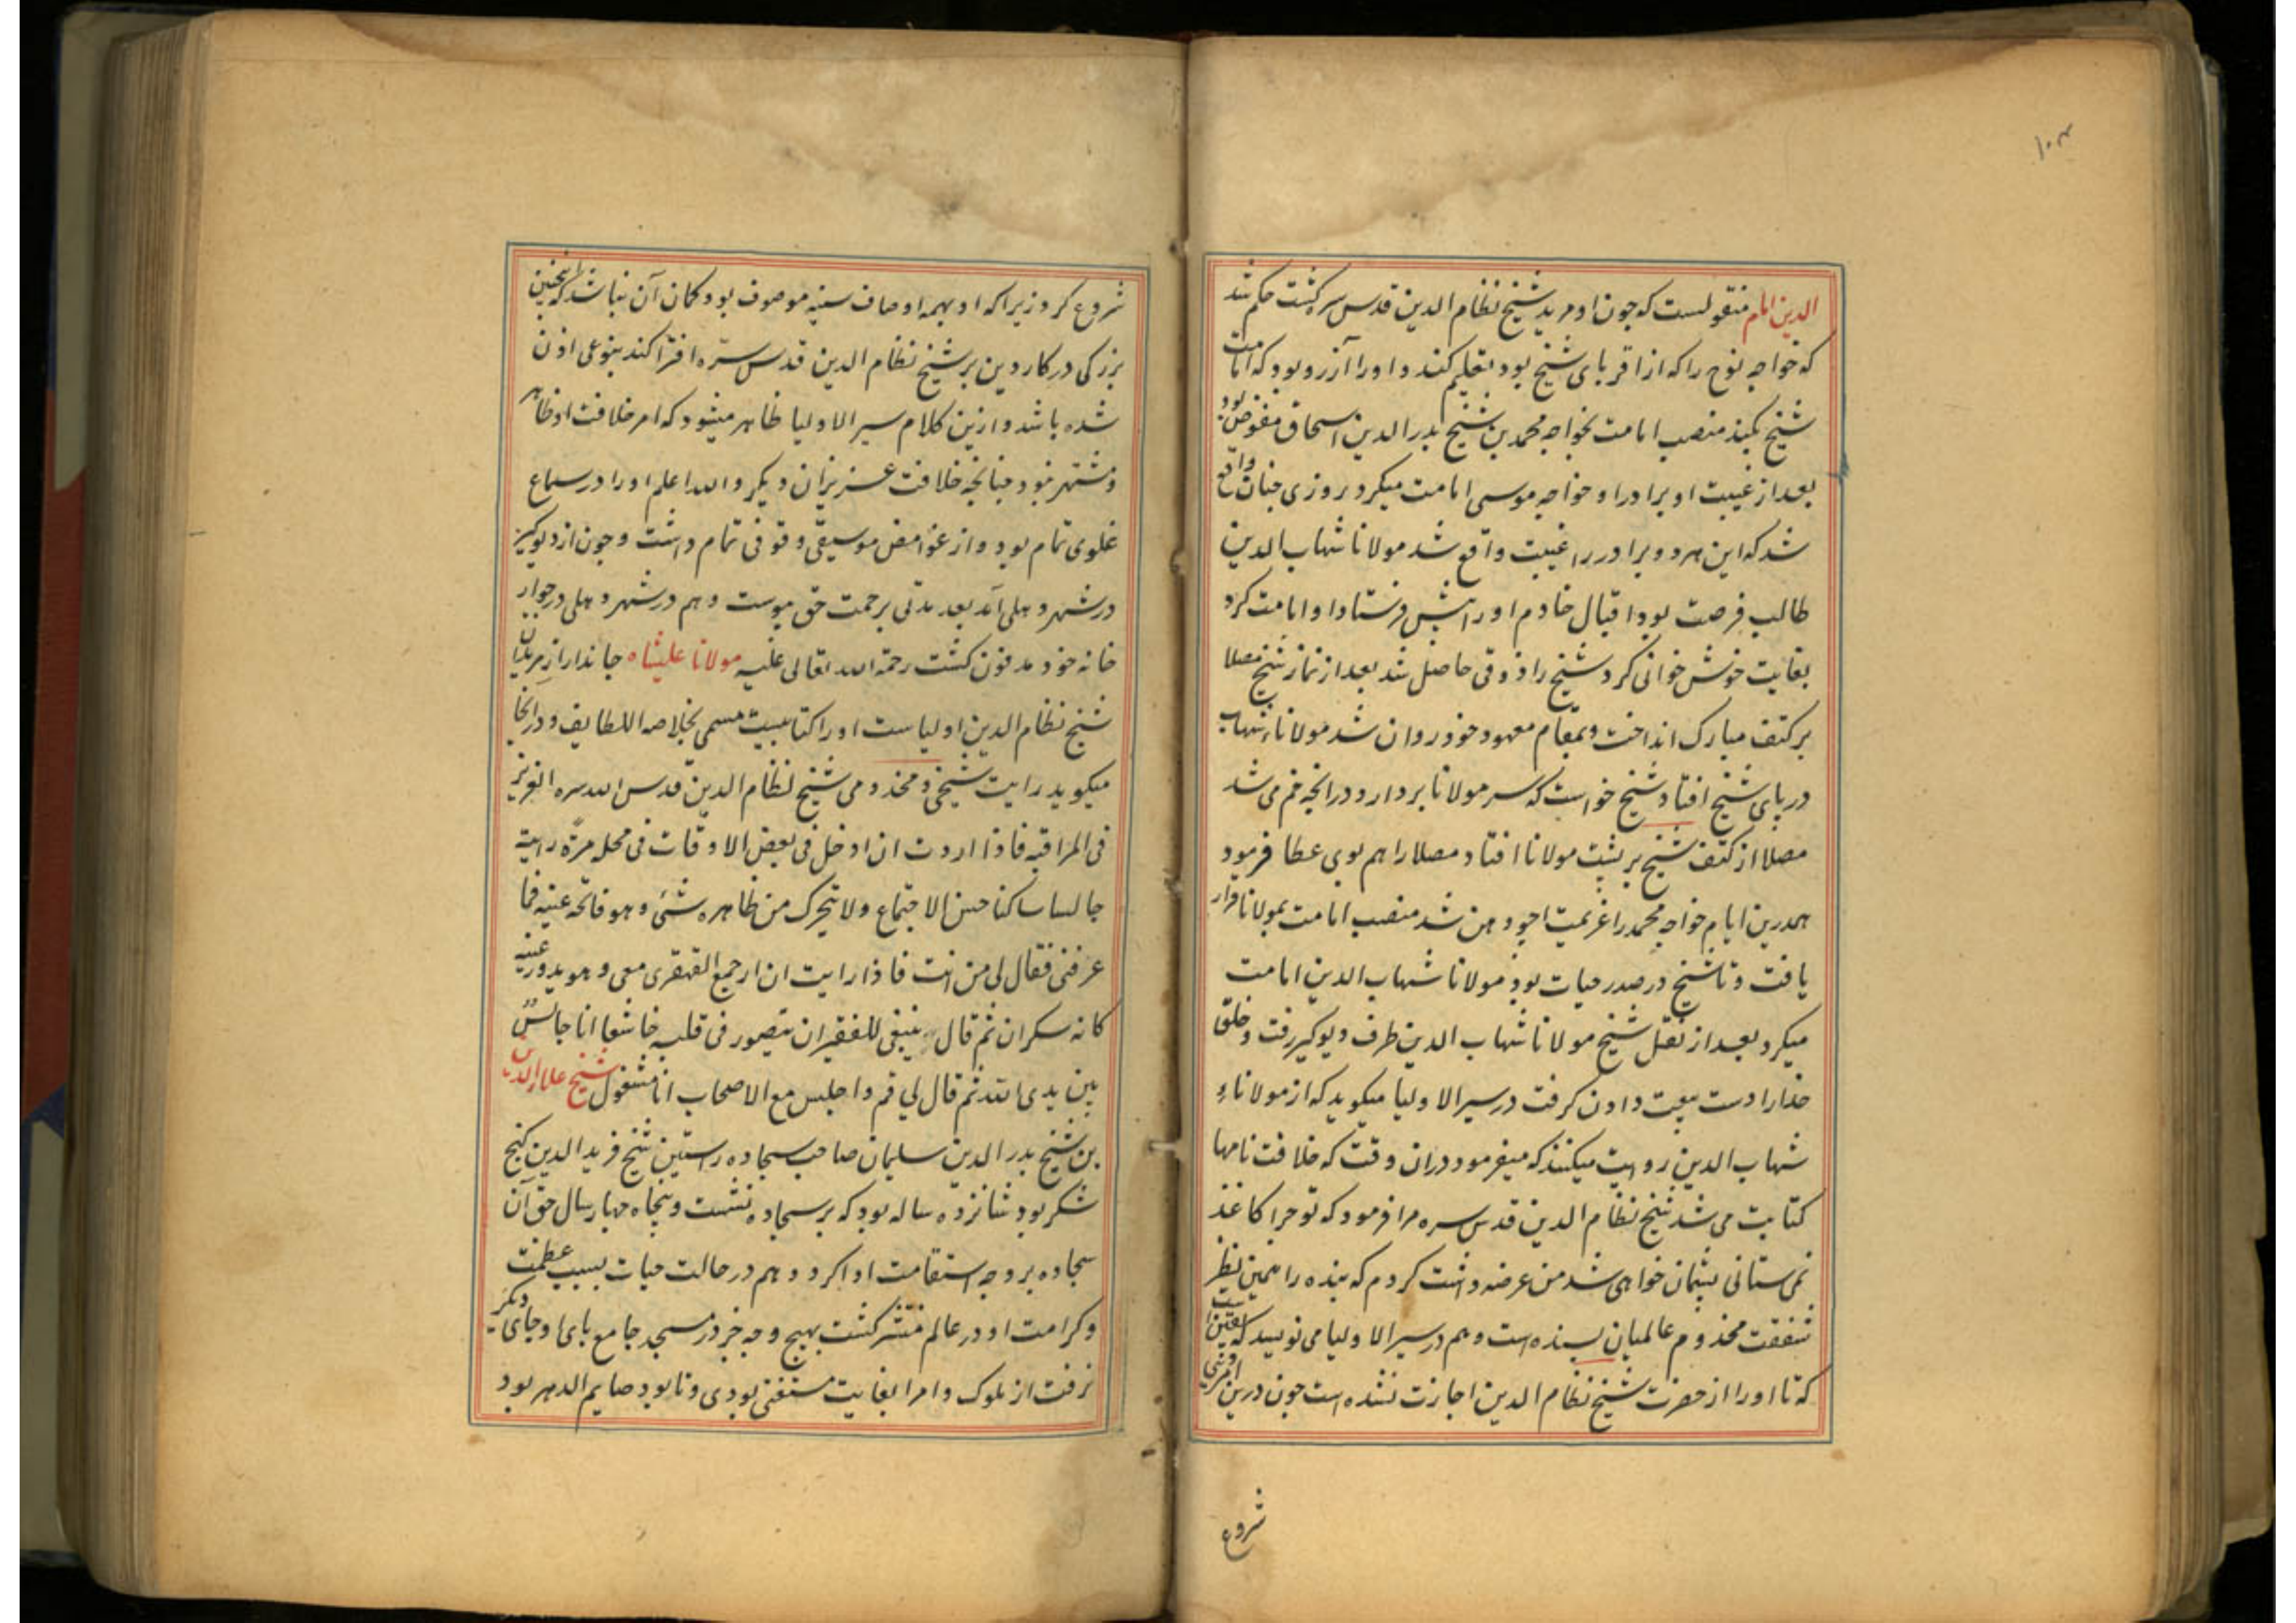 ۱۰۳
الدین امام منقولست که چون او مرید شیخ نظام الدین قدس سره گشت حکم شد
که خواجه نوح را که از اقربای شیخ بود تعلیم کند و او را آرزو بود که امامت
شیخ بکند منصب امامت بخواجه محمد بن شیخ بدر الدین اسحاق مفوض بود
بعد از غیبت او برادر او خواجه موسی امامت میکرد روزی چنان واقع
شد که این هر دو برادر را غیبت واقع شد مولانا شهاب الدین
طالب فرصت بود اقبال خادم او را پیش فرستاد او امامت کرد
بغایت خوش خوانی کرد شیخ را ذوقی حاصل شد بعد از نماز شیخ مصلا
بر کتف مبارک انداخت و بمقام معهود خود روان شد مولانا شهاب
در پای شیخ افتاد شیخ خواست که سر مولانا بردارد در انجه خم می شد
مصلا از کتف شیخ بر پشت مولانا افتاد مصلا را هم بوی عطا فرمود
همدرین ایام خواجه محمد را عزیمت اجودهن شد منصب امامت بمولانا قرار
یافت و تا شیخ در صدر حیات بود مولانا شهاب الدین امامت
میکرد بعد از نقل شیخ مولانا شهاب الدین طرف دیوکیر رفت و خلق
خدا را دست بیعت دادن گرفت در سیر الاولیا میگوید که از مولاناء
شهاب الدین روایت میکنند که میفرمود دران وقت که خلافت نامها
کتابت می شد شیخ نظام الدین قدس سره مرا فرمود که تو چرا کاغذ
نمی ستانی پشیمان خواهی شد من عرضه داشت کردم که بنده را همین نظر
شفقت مخدوم عالمیان بسنده است و هم در سیر الاولیا می نویسد که یقین است
که تا او را از حضرت شیخ نظام الدین اجازت نشده است چون درین امر دینی
شروع
شروع کرد زیرا که او بهمه اوصاف سنیه موصوف بود گمان آن نباشد که اینچنین
بزرگی در کار دین بر شیخ نظام الدین قدس سرّه افترا کند بنوعی اذن
شده باشد و ازین کلام سیر الاولیا ظاهر میشود که امر خلافت او ظاهر
و مشتهر نبود چنانچه خلافت عزیزان دیگر والله اعلم او را در سماع
غلوی تمام بود و از غوامض موسیقی وقوفی تمام داشت و چون از دیوکیر
در شهر دهلی آمد بعد مدتی برحمت حق پیوست و هم در شهر دهلی در جوار
خانه خود مدفون گشت رحمة الله تعالی علیه مولانا علیشاه جاندار از مریدان
شیخ نظام الدین اولیاست او را کتابیست مسمی بخلاصه اللطایف و در انجا
میگوید رایت شیخی و مخدومی شیخ نظام الدین قدس الله سره العزیز
فی المراقبه فاذا اردت ان ادخل فی بعض الاوقات فی محله مرّة رایته
جالسا ساکنا حسن الاجتماع ولا یتحرک من ظاهره شئ و هو فاتحه عینیه فما
عرفنی فقال لی من انت فاذا رایت ان ارجع القهقری معی و هو یدور عینیه
کانه سکران ثم قال ینبغی للفقیر ان یتصور فی قلبه خاشعا انا جالس
بین یدی الله ثم قال لی قم و اجلس مع الاصحاب انا مشغول شیخ علاء الدین
بن شیخ بدر الدین سلیمان صاحب سجاده راستین شیخ فرید الدین گنج
شکر بود شانزده ساله بود که بر سجاده نشست و پنجاه چهار سال حق آن
سجاده بر وجه استقامت ادا کرد و هم در حالت حیات بسبب عظمت
و کرامت او در عالم منتشر گشت بهیچ وجه جز در مسجد جامع بای او جای دیگر
نرفت از ملوک و امرا بغایت مستغنی بودی و تا بود صایم الدهر بود